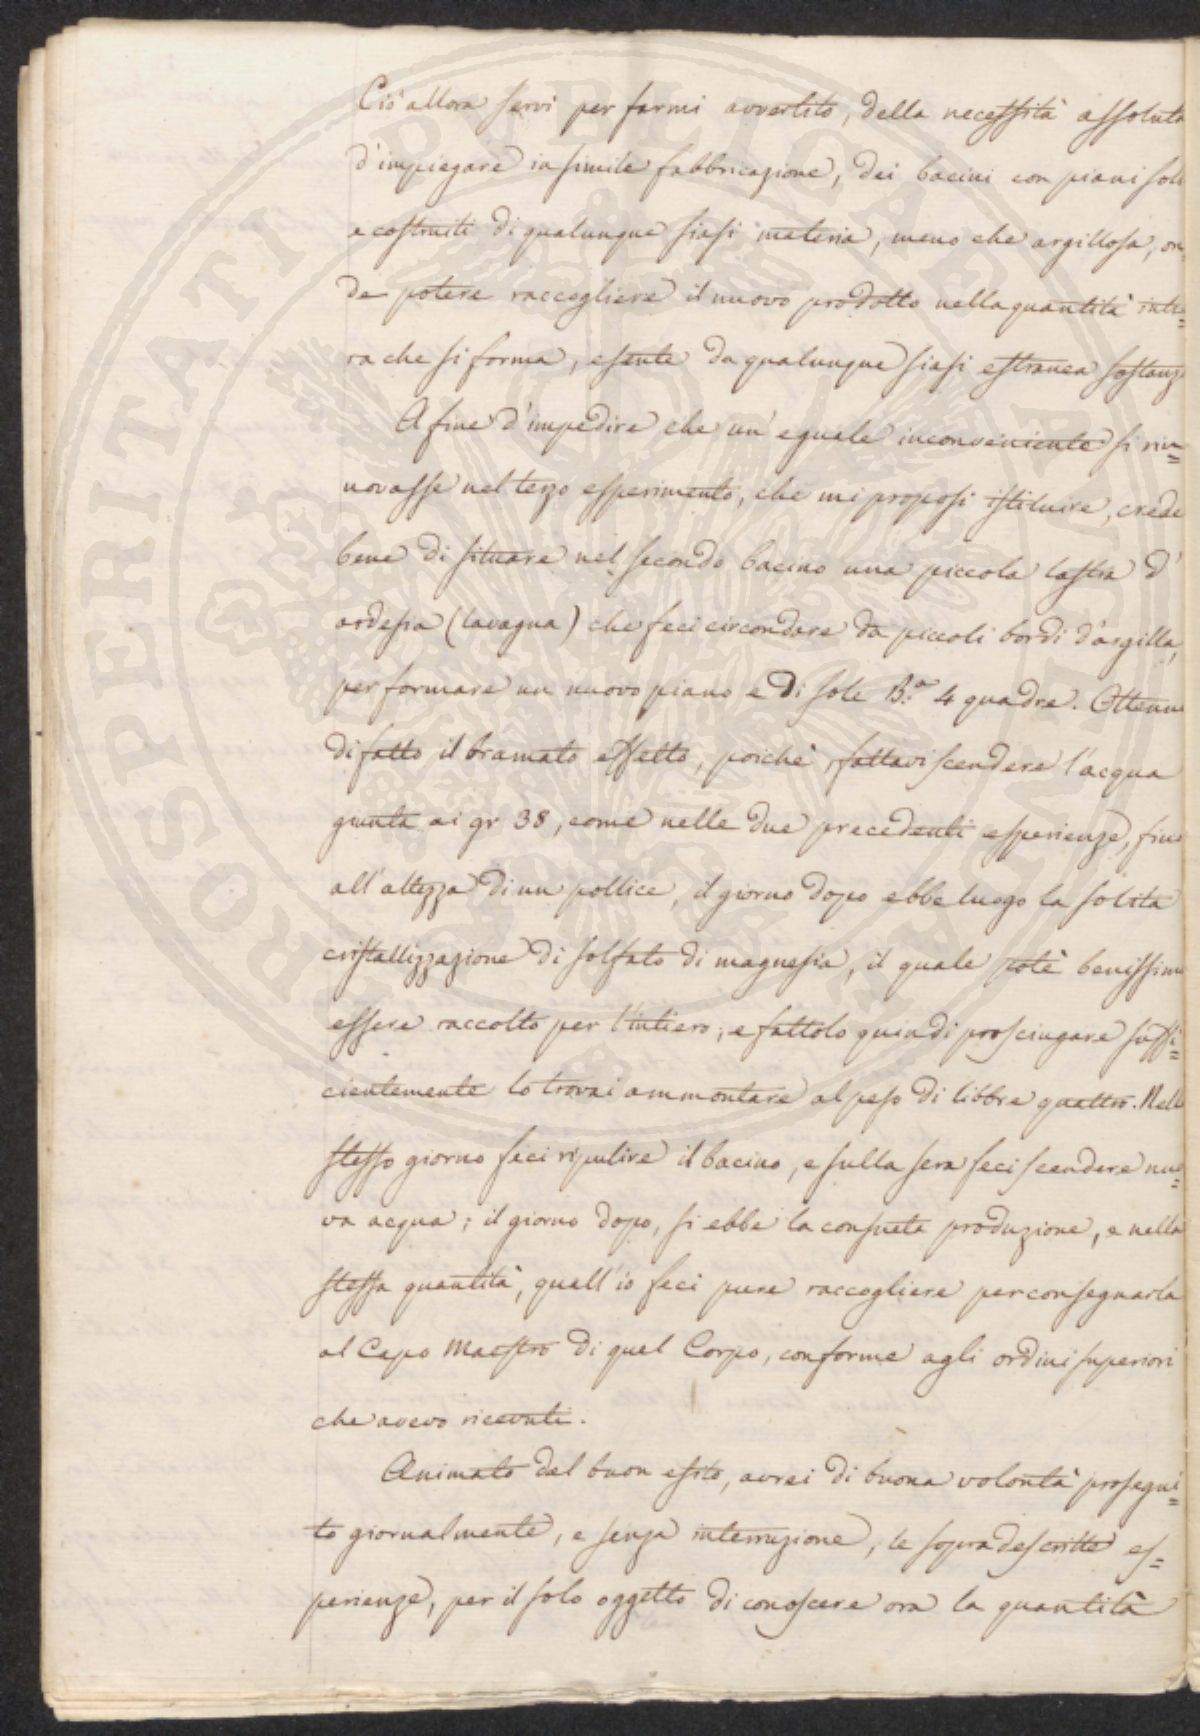 Ciò allora servì per farmi avvertito, della necessità assoluta
d'impiegare in simile fabbricazione, dei bacini con piani soli
e costruiti di qualunque siasi materia, meno che argillosa, on
de potere raccogliere il nuovo prodotto nella quantità inte=
ra che si forma, esente da qualunque siasi estranea sostanz
A fine d'impedire che un'eguale inconveniente si rin=
novasse nel terzo esperimento, che mi proposi istituire, crede
bene di situare nel secondo bacino una piccola lastra d'
ardesia (lavagna) che feci circondare da piccoli bordi d'argilla,
per formare un nuovo piano e di sole B.e 4 quadre. Ottenni
di fatto il bramato effetto, poichè, fattavi scendere l'acqua
giunta ai gr 38, come nelle due precedenti esperienze, fino
all'altezza di un pollice, il giorno dopo ebbe luogo la solita
cristallizzazione di solfato di magnesia, il quale potè benissimo
essere raccolto per l'intiero; e fattolo quindi prosciugare suffi=
cientemente lo trovai ammontare al peso di libbre quattro. Nello
stesso giorno feci ripulire il bacino, e sulla sera feci scendere nuo=
va acqua; il giorno dopo, si ebbe la consueta produzione, e nella
stessa quantità, quall'io feci pure raccogliere per consegnarla
al Capo Maestro di quel Corpo, conforme agli ordini superiori
che avevo ricevuti.
Animato dal buon esito, avrei di buona volontà prosegui=
to giornalmente, e senza interruzione, le sopradescritte es=
perienze, per il solo oggetto di conoscere ora la quantità
PROSPERITATI PUBLICAE